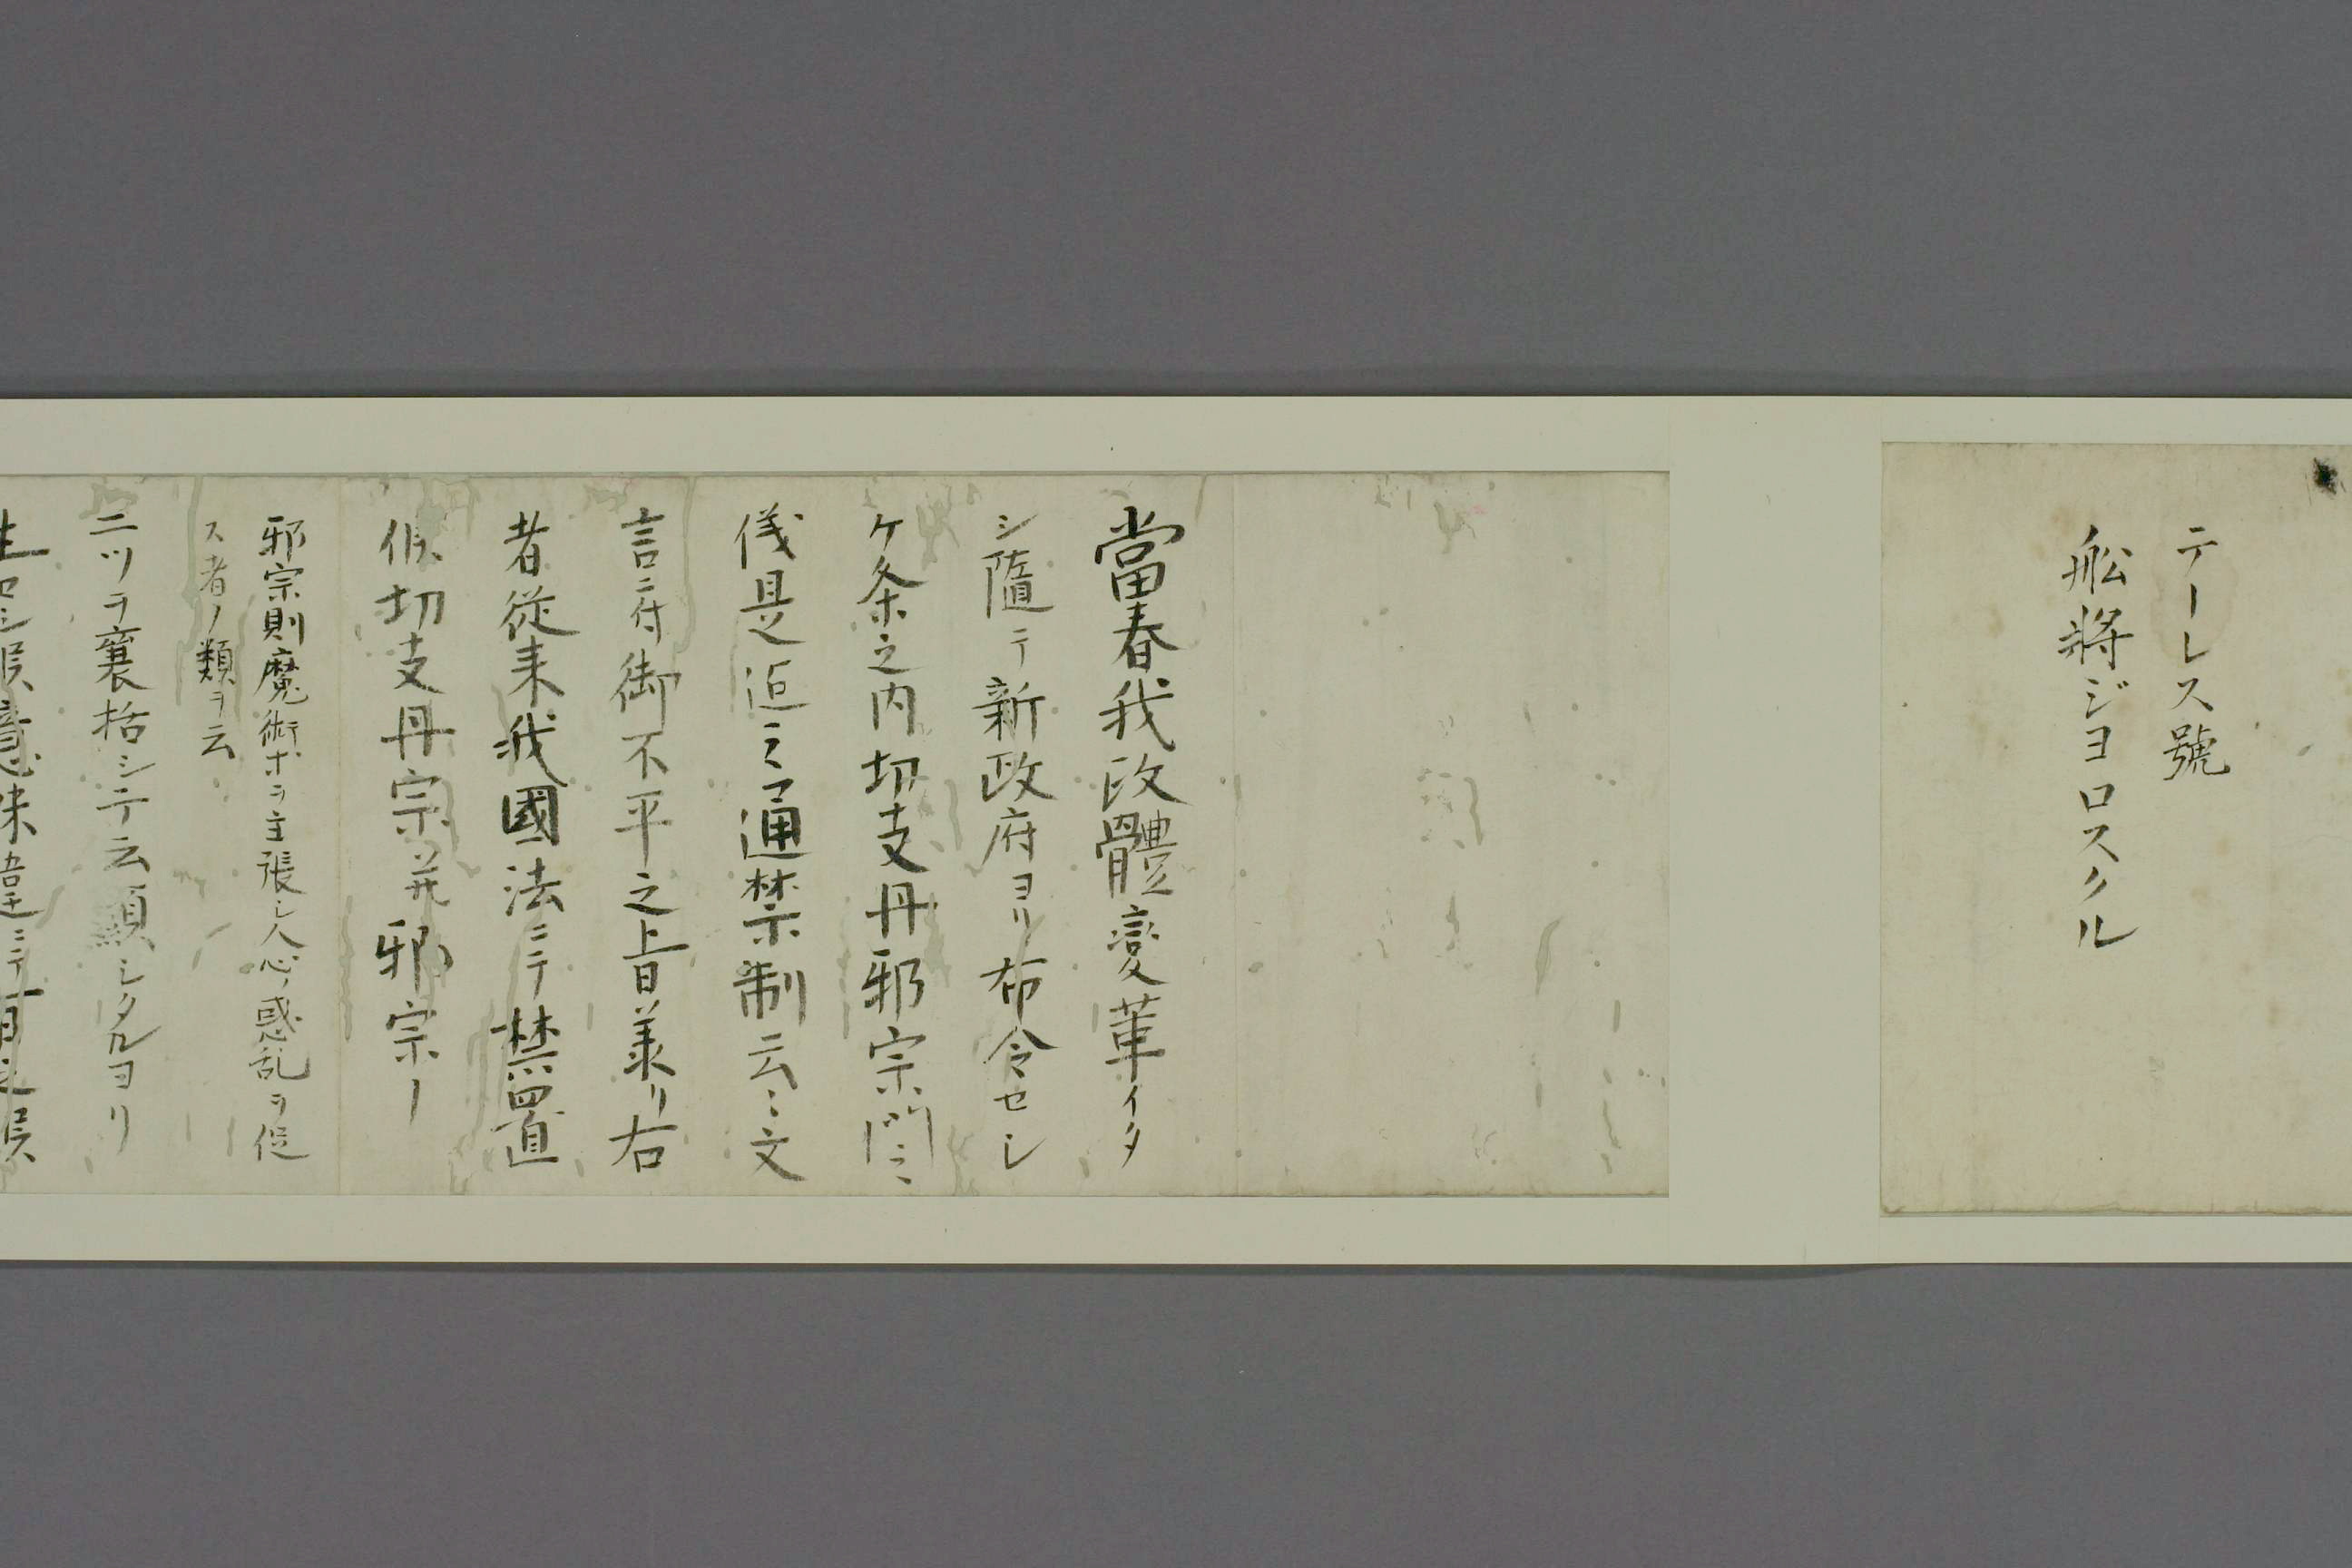 テーレス號
舩將ジヨロスクル
當春我政體變革イタ
シ隨テ新政府ヨリ布令セシ
ケ条之内切支丹邪宗門ニ
儀是迄之通禁制云々文
言ニ付御不平之旨羨リ右
者従来我國法ニテ禁置
候切支丹宗并邪宗ー
邪宗則魔術ホヲ主張シ人心ノ惑乱ヲ促
ス者ノ類ヲ云
ニツヲ襄括シテ云顯シタルヨリ
生セシ候意味違ニテ